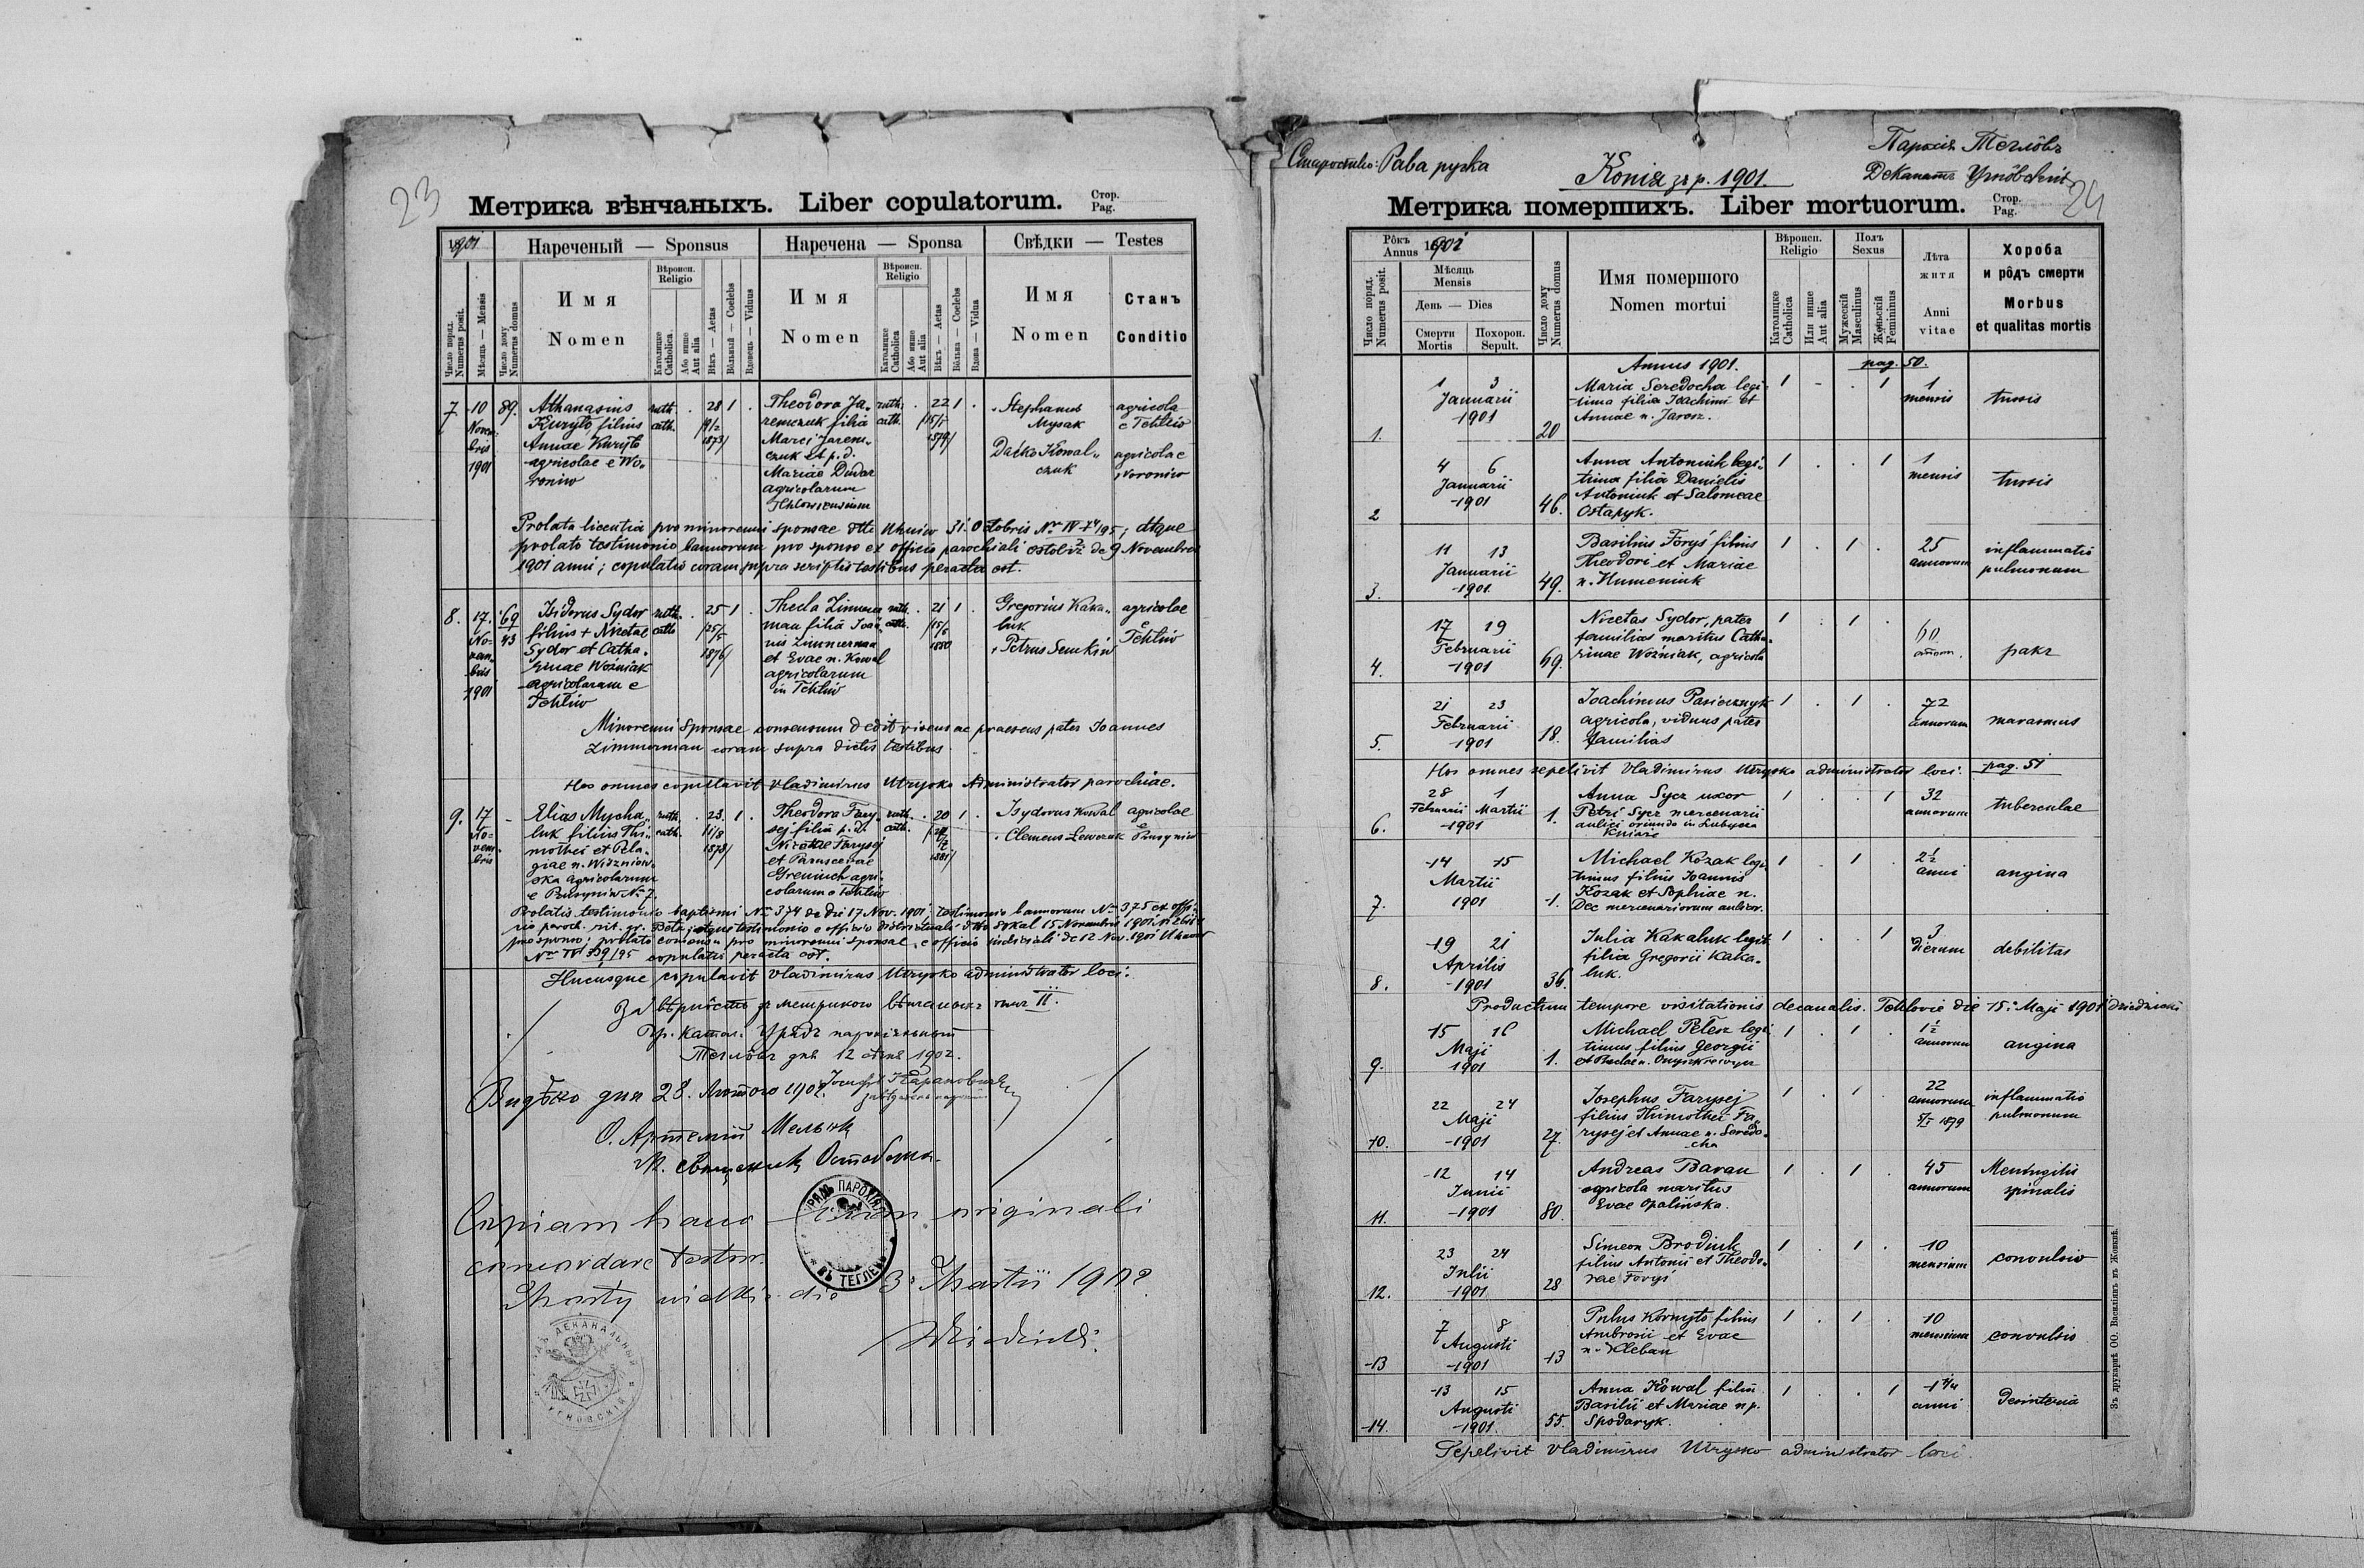 23
Метрика вѣнчаныхъ. Liber copulatorum.
Стор.
Pag.
1901
Нареченый — Sponsus
Наречена — Sponsa
Свѣдки — Testes
Число поряд.
Numerus posit.
Мѣсяць — Mensis
Число дому
Numerus domus
Имя
Nomen
Вѣроисп.
Religio
Католицке
Catholica.
Або инше
Aut alia
Вѣкъ — Aetas
Вôльный — Coelebs
Вдовець — Viduus
Имя
Nomen
Вѣроисп.
Religio
Католицке
Catholica
Або инше
Aut alia
Вѣкъ — Aetas
Вôльна — Coelebs
Вдова — Vidua
Имя
Nomen
Станъ
Conditio
7 10 Novembris 1901 89.
Athanasius
Kuryło, filius
Annae Kuryło
agricolae e Wo-
roniw
ruth. cath. 28 1
1873
Theodora Ja-
remczuk filia
Marci Jarem-
czuk et p. d.
Mariae Dudar
agricolarum
ruth. cath. 22 1
1879
Stephanus
Mysak
agricola
e Tehliw
Daćko Kowal-
czuk
agricola e
Woroniw
Prolata licentia pro minorenni sponsae dtto Uhniw 31. Octobris No IV 74/95; atque
prolato testimonio bannorum pro sponso ex officio parochiali de 9 Novembris
1901 anni; copulatio coram supra scriptis testibus peracta est.
8. 17. Novembris 1901 69 43
Isidorus Sydor
filius + Nicetae
Sydor et Catha-
rinae Woźniak
agricolarum e
Tehliw
ruth. cath 25 1
25/5
1876
Thecla Zimmer
man filia Joan
nis Zimmerman
et Evae n. Kowal
agricolarum
in Tehliw
ruth. cath. 21 1
1880
Gregorius Kaka-
luk
Petrus Semkiw
agricolae
e
Tehliw
Minorenni sponsae consensum dedit vicens ac praesens pater Joannes
Zimmerman coram supra dictis testibus
Hos omnes copulavit Vladimirus Utrysko Administrator parochiae.
9. 17 Novembris -
Elias Mycha-
luk filius Thi-
mothei et Pela-
giae n. Wiszniow-
ska agricolarum
e Prusyniw No 7.
ruth. cath. 23. 1
11/8
1878
Theodora Fary-
sej filia p. d.
Nicetae Farysej
et Parasceviae
Greniuch agri-
colarum e Tehliw
ruth. cath. 20 1
1881
Isydorus Kowal
Clemens Lewczuk
agricolae
e
Prusyniw
Prolatis testimonio baptismi No 374 de dei 17 Nov. 1901, testimonio bannorum No 375 ex offi-
cio paroch. rit. gr. Bełz, atque testimonio e officio districtuali dtto Sokal 15 Novembris 1901
pro sponso; prolato consensu pro minorenni sponsae, e officio iudiciali de 12 Nov. 1901 Uhniw
No IV 99/95 copulatio peracta est.
Hucusque copulavit Vladimirus Utrysko administrator loci.
За вѣрнôсть зъ метрикою вѣнчаныхъ томъ II.
Гр. катол. Урядъ парохіяльный
Теглôвъ дня 12 сѣчня 1902.
Видѣно дня 28. Лютого 1902.
О. Артемій Мельник
Copiam hanc cum originali
concordare testor.
Mosty wielkie die 3 Martii 1902.
ВЪ ТЕГЛЕВѢ
Староство: Рава руска
Копія зъ р. 1901.
Парохія Теглôвъ
Деканатъ Угнôвскій
24
Метрика померших­ъ. Liber mortuorum.
Стор.
Pag.
Рôкъ
Annus 1901
Число поряд.
Numerus posit.
Мѣсяць
Mensis
День — Dies
Смерти
Mortis
Похорон.
Sepult.
Число дому
Numerus domus
Имя помершого
Nomen mortui
Вѣроисп.
Religio
Католицке
Catholica
Или инше
Aut alia
Полъ
Sexus
Мужескій
Masculinus
Женьскій
Femininus
Лѣта
житя
Anni
vitae
Хороба
и рôдъ смерти
Morbus
et qualitas mortis
Annus 1901. pag. 50.
1. 1 3 Januarii 1901 20
Maria Seredocha legi-
tima filia Joachimi et
Annae n. Jarosz.
1 1 1 mensis tussis
2 4 6 Januarii 1901 46.
Anna Antoniuk legi-
tima filia Danielis
Antoniuk et Salomeae
Ostapyk.
1 1 1 mensis tussis
3. 11 13 Januarii 1901 49.
Basilius Foryś filius
Theodori et Mariae
n. Humeniuk
1 1 25 annorum inflammatio pulmonum
4. 17 19 Februarii 1901 69.
Nicetas Sydor, pater
familias maritus Catha-
rinae Woźniak, agricola
1 1 60 annor. rakz
5. 21 23 Februarii 1901 18.
Joachimus Pasicznyk
agricola, viduus pater
familias
1 1 72 annorum marasmus
Hos omnes sepelivit Vladimirus Utrysko administrator loci. pag. 51
6. 28 Februarii 1 Martii 1901 1.
Anna Sycz uxor
Petri Sycz mercenarii
aulici oriundo in Lubycza
Kniazie
1 1 32 annorum tuberculae
7. 14 15 Martii 1901 1.
Michael Kozak legi-
timus filius Joannis
Kozak et Sophiae n.
Dec mercenariorum aulicor.
1 1 2½ anni angina
8. 19 21 Aprilis 1901 36.
Julia Kakaluk legit.
filia Gregorii Kaka-
luk.
1 1 3 dierum debilitas
Productum tempore visitationis decanalis. Tehlovie die 15. Maji 1901
9. 15 16 Maji 1901 1.
Michael Petesz legi
timus filius Georgii
1 1 1½ annorum angina
10. 22 24 Maji 1901 27.
Josephus Farysej
filius Thimothei Fa-
rysej et Annae n. Seredo-
cha
1 1 22 annorum 1879 inflammatio pulmonum
11. 12 14 Junii 1901 80.
Andreas Baran
agricola maritus
Evae Opalińska.
1 1 45 annorum Meningitis spinalis
12. 23 24 Julii 1901 28
Simeon Brodiuk
filius Antonii et Theodo-
rae Foryś
1 1 10 mensium convulsio
13 7 8 Augusti 1901 13
Paulus Kornyło filius
Ambrosii et Evae
n. Kleban
1 1 10 mensium convulsio
14. 13 15 Augusti 1901 55.
Anna Kowal filia
Basilii et Mariae n p.
Spodaryk.
1 1 1¾ anni desinteria
Sepelivit Vladimirus Utrysko administrator loci.
Зъ друкарнѣ ОО. Василіянъ въ Жовквѣ.